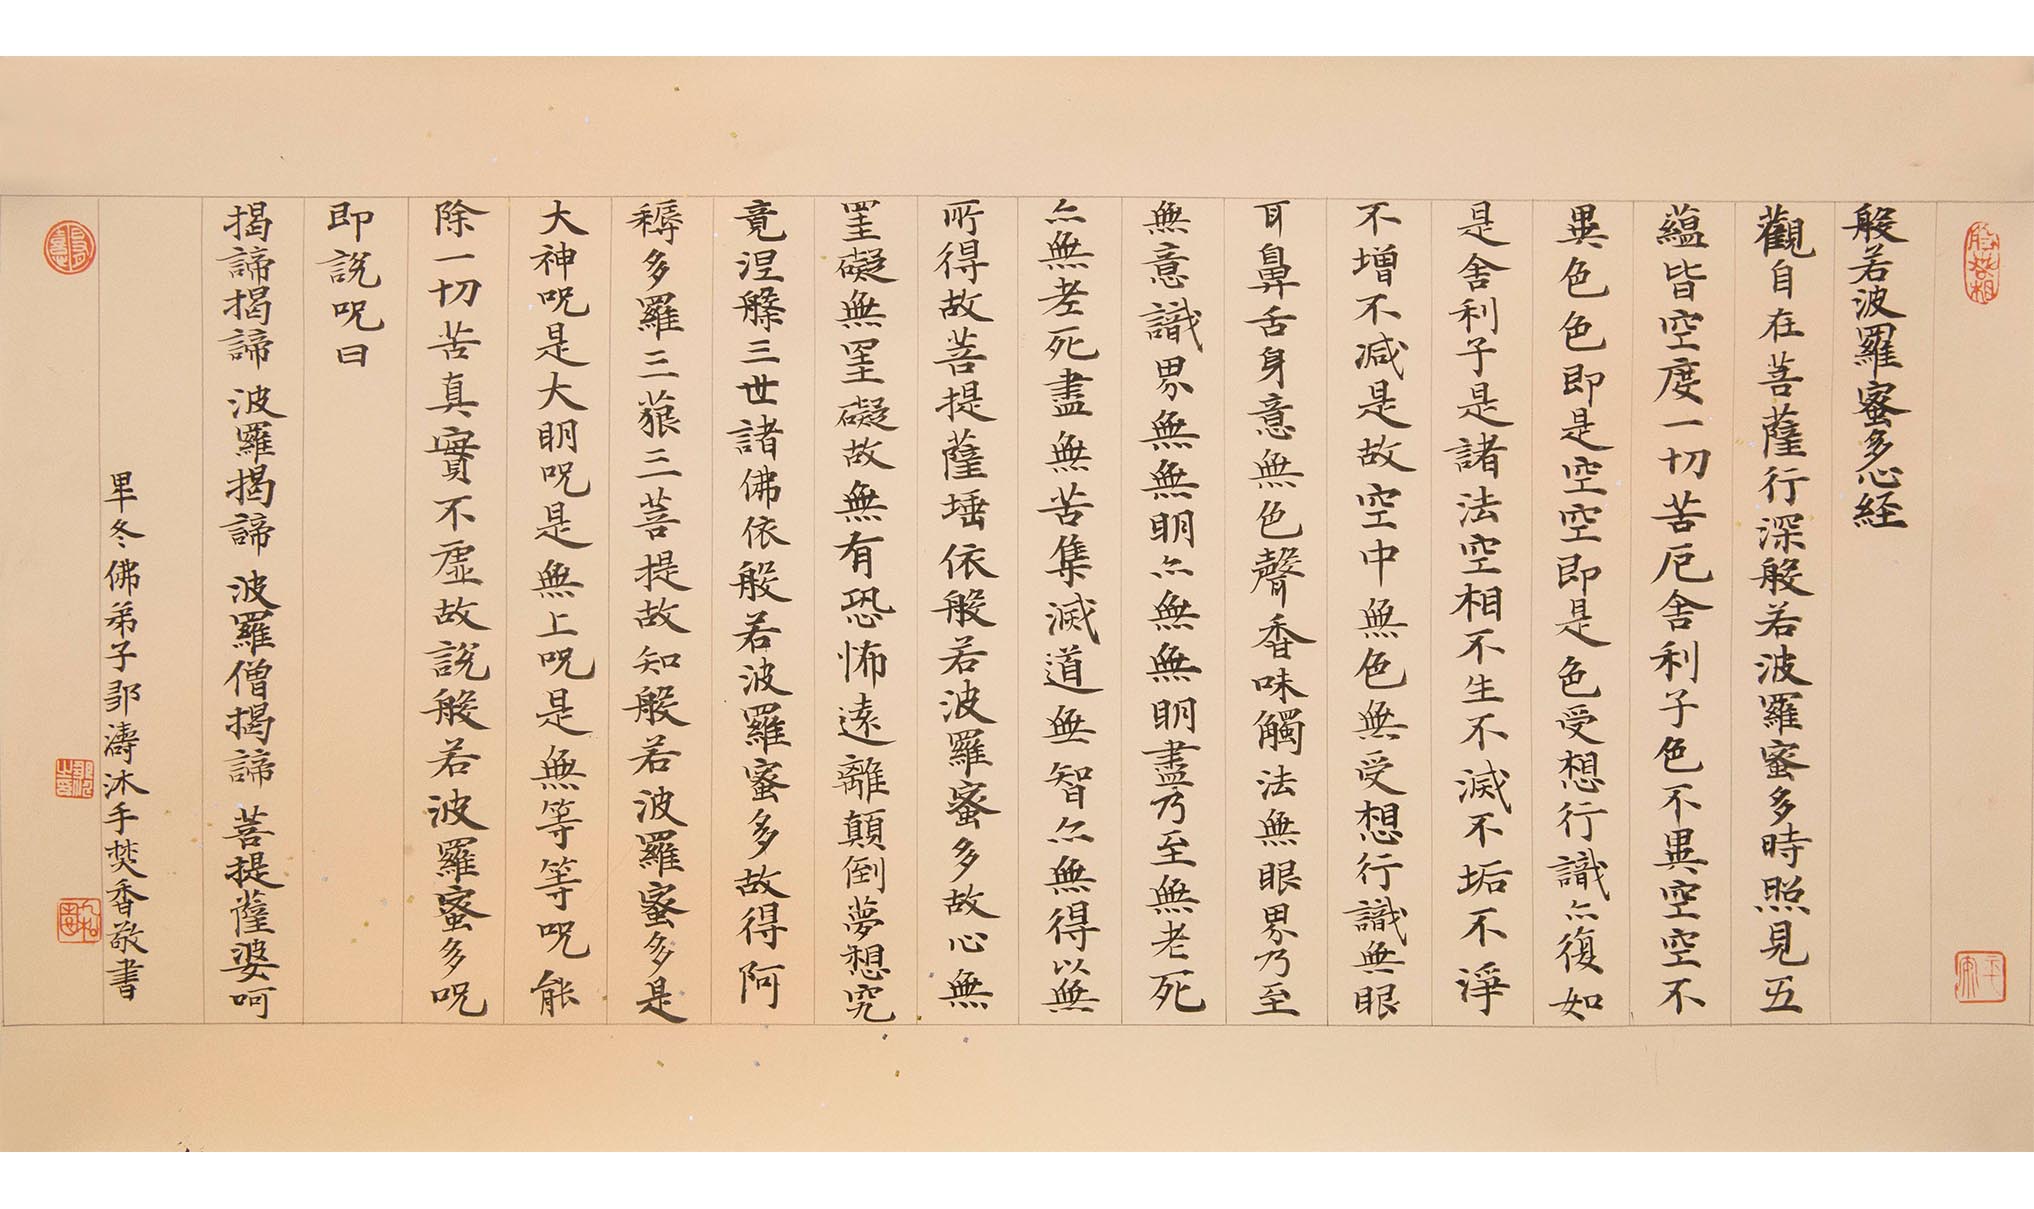 般若波羅蜜多心経
觀自在菩薩行深般若波羅蜜多時照見五
蘊皆空度一切苦厄舍利子色不異空空不
異色色即是空空即是色受想行識亦復如
是舍利子是諸法空相不生不滅不垢不淨
不增不減是故空中無色無受想行識無眼
耳鼻舌身意無色聲香味觸法無眼界乃至
無意識界無無明亦無無明盡乃至無老死
亦無老死盡無苦集滅道無智亦無得以無
所得故菩提薩埵依般若波羅蜜多故心無
罣礙無罣礙故無有恐怖遠離顛倒夢想究
竟涅槃三世諸佛依般若波羅蜜多故得阿
耨多羅三藐三菩提故知般若波羅蜜多是
大神呪是大明呪是無上呪是無等等呪能
除一切苦真實不虛故說般若波羅蜜多呪
即說呪曰
揭諦揭諦 波羅揭諦 波羅僧揭諦 菩提薩婆呵
冬佛弟子濤沐手焚香敬書